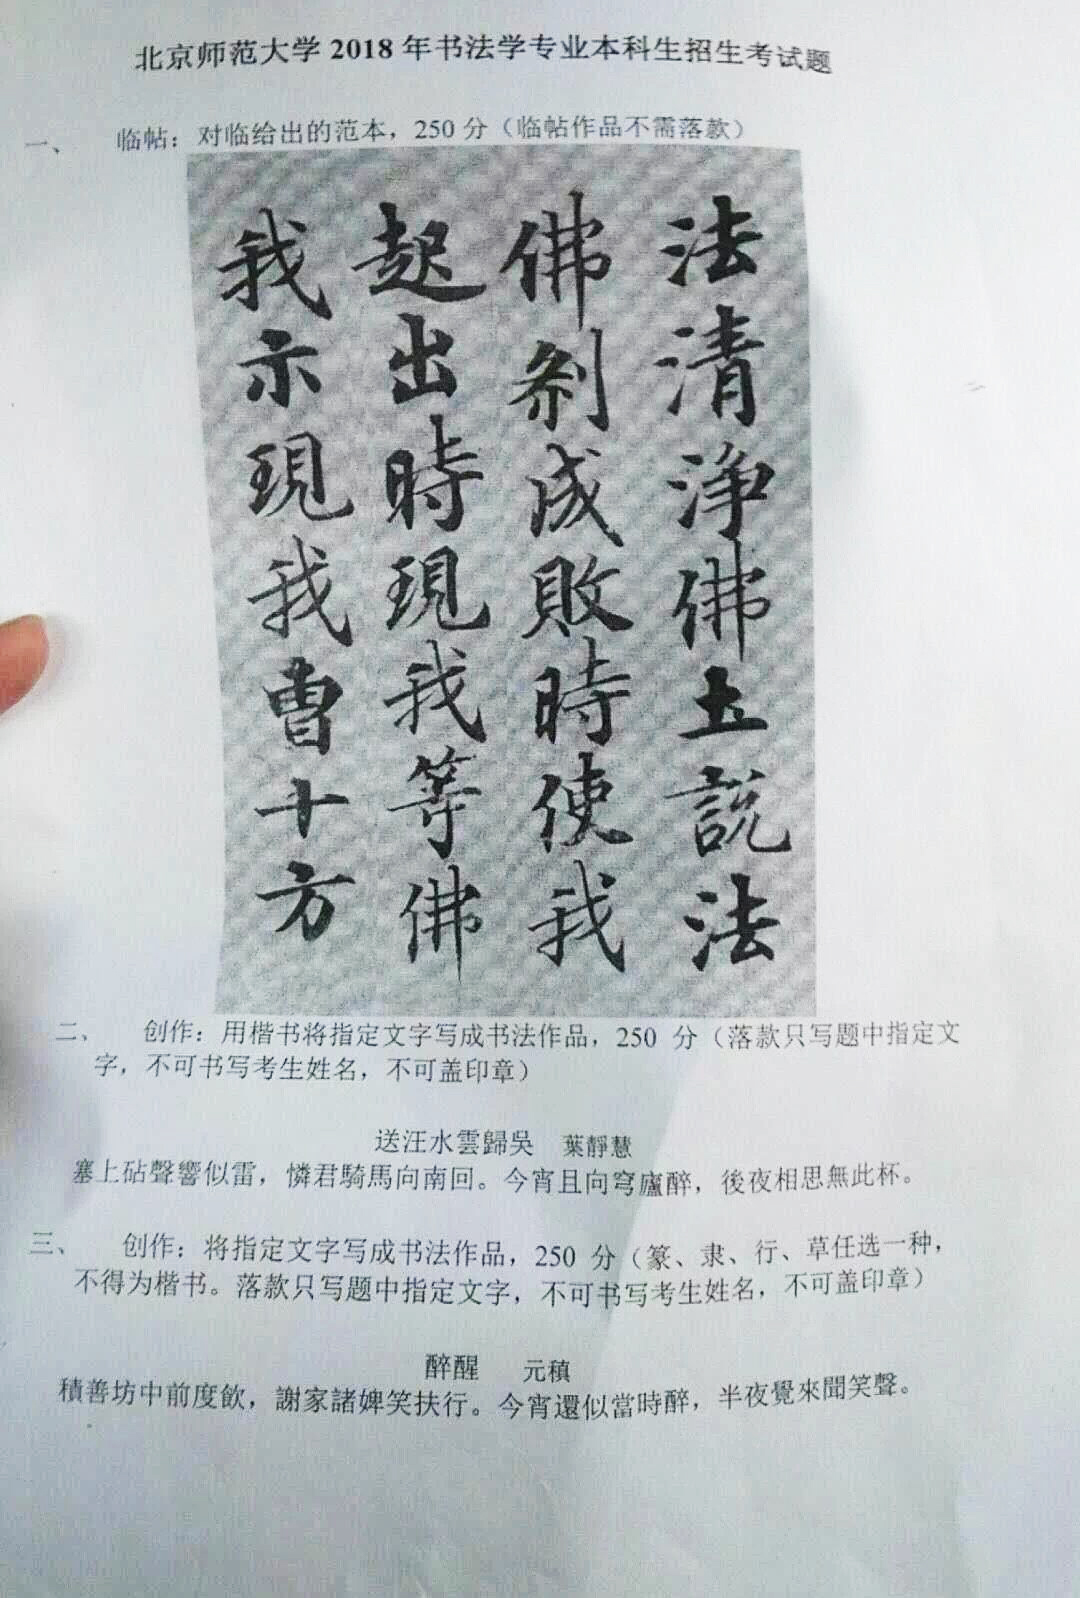 北京师范大学 2018 年书法学专业本科生招生考试题
一、 临帖：对临给出的范本，250 分（临帖作品不需落款）
法清淨佛土説法
佛刹成敗時使我
起出時現我等佛
我示現我曹十方
二、 创作：用楷书将指定文字写成书法作品，250 分（落款只写题中指定文
字，不可书写考生姓名，不可盖印章）
送汪水雲歸吳 葉靜慧
塞上砧聲響似雷，憐君騎馬向南回。今宵且向穹廬醉，後夜相思無此杯。
三、 创作：将指定文字写成书法作品，250 分（篆、隶、行、草任选一种，
不得为楷书。落款只写题中指定文字，不可书写考生姓名，不可盖印章）
醉醒 元稹
積善坊中前度飲，謝家諸婢笑扶行。今宵還似當時醉，半夜覺來聞笑聲。